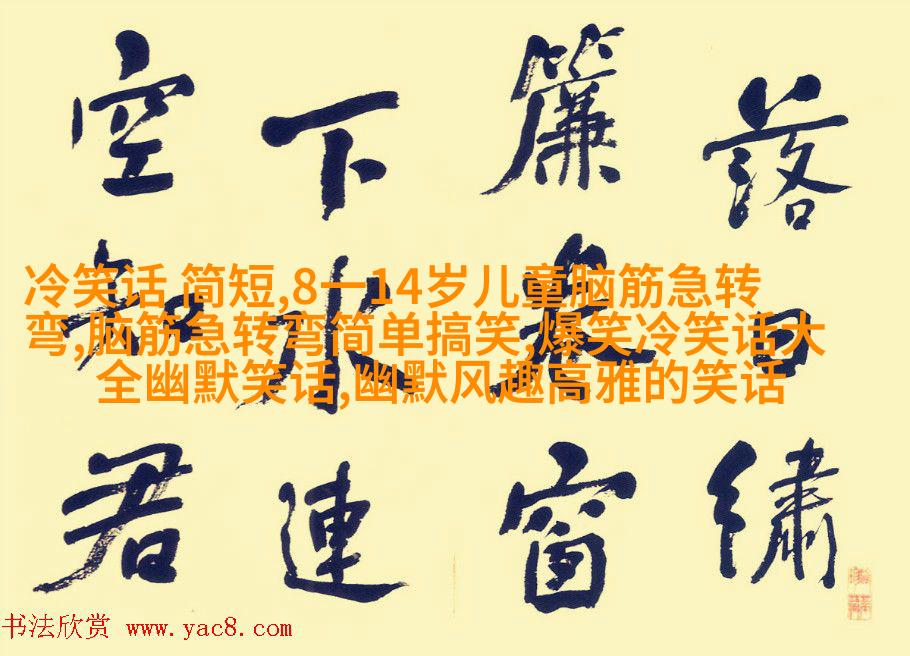 落日繡
簾卷窗
下水連
空知君
冷笑话 简短,8一14岁儿童脑筋急转
弯,脑筋急转弯简单搞笑,爆笑冷笑话大
全幽默笑话,幽默风趣高雅的笑话
书法欣赏 www.yac8.com